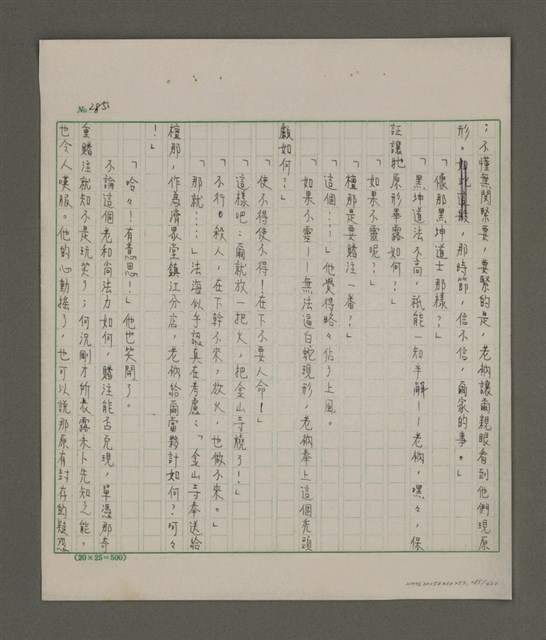 No. 285
；不懂無關緊要，要緊的是，老衲讓爾親眼看到他們現原
形。那時節，信不信，爾家的事。」
「像那黑坤道士那樣？」
「黑坤道法不高，祇能一知半解——老衲，嘿々，保
証讓牠原形畢露如何？」
「如果不靈呢？」
「檀那是要賭注一番？」
「這個……」他覺得略々佔了上風。
「如果不靈——無法逼白蛇現形，老衲奉上這個禿頭
顱如何？」
「使不得使不得！在下不要人命！」
「這樣吧：爾就放一把火，把金山寺燒了！」
「不行。殺人，在下幹不來，放火，也做不來。」
「那就……」法海似乎認真在考慮：「金山寺奉送給
檀那，作為濟眾堂鎮江分店，老衲給爾當夥計如何？呵々
！」
「哈々！有意思！」他也笑開了。
不論這個老和尚法力如何，賭注能否兌現，單憑那奇
重賭注就知不是玩笑了；何況剛才所表露未卜先知之能，
也令人嘆服。他的心動搖了，也可以說那原有封存的疑惑
(20×25=500)